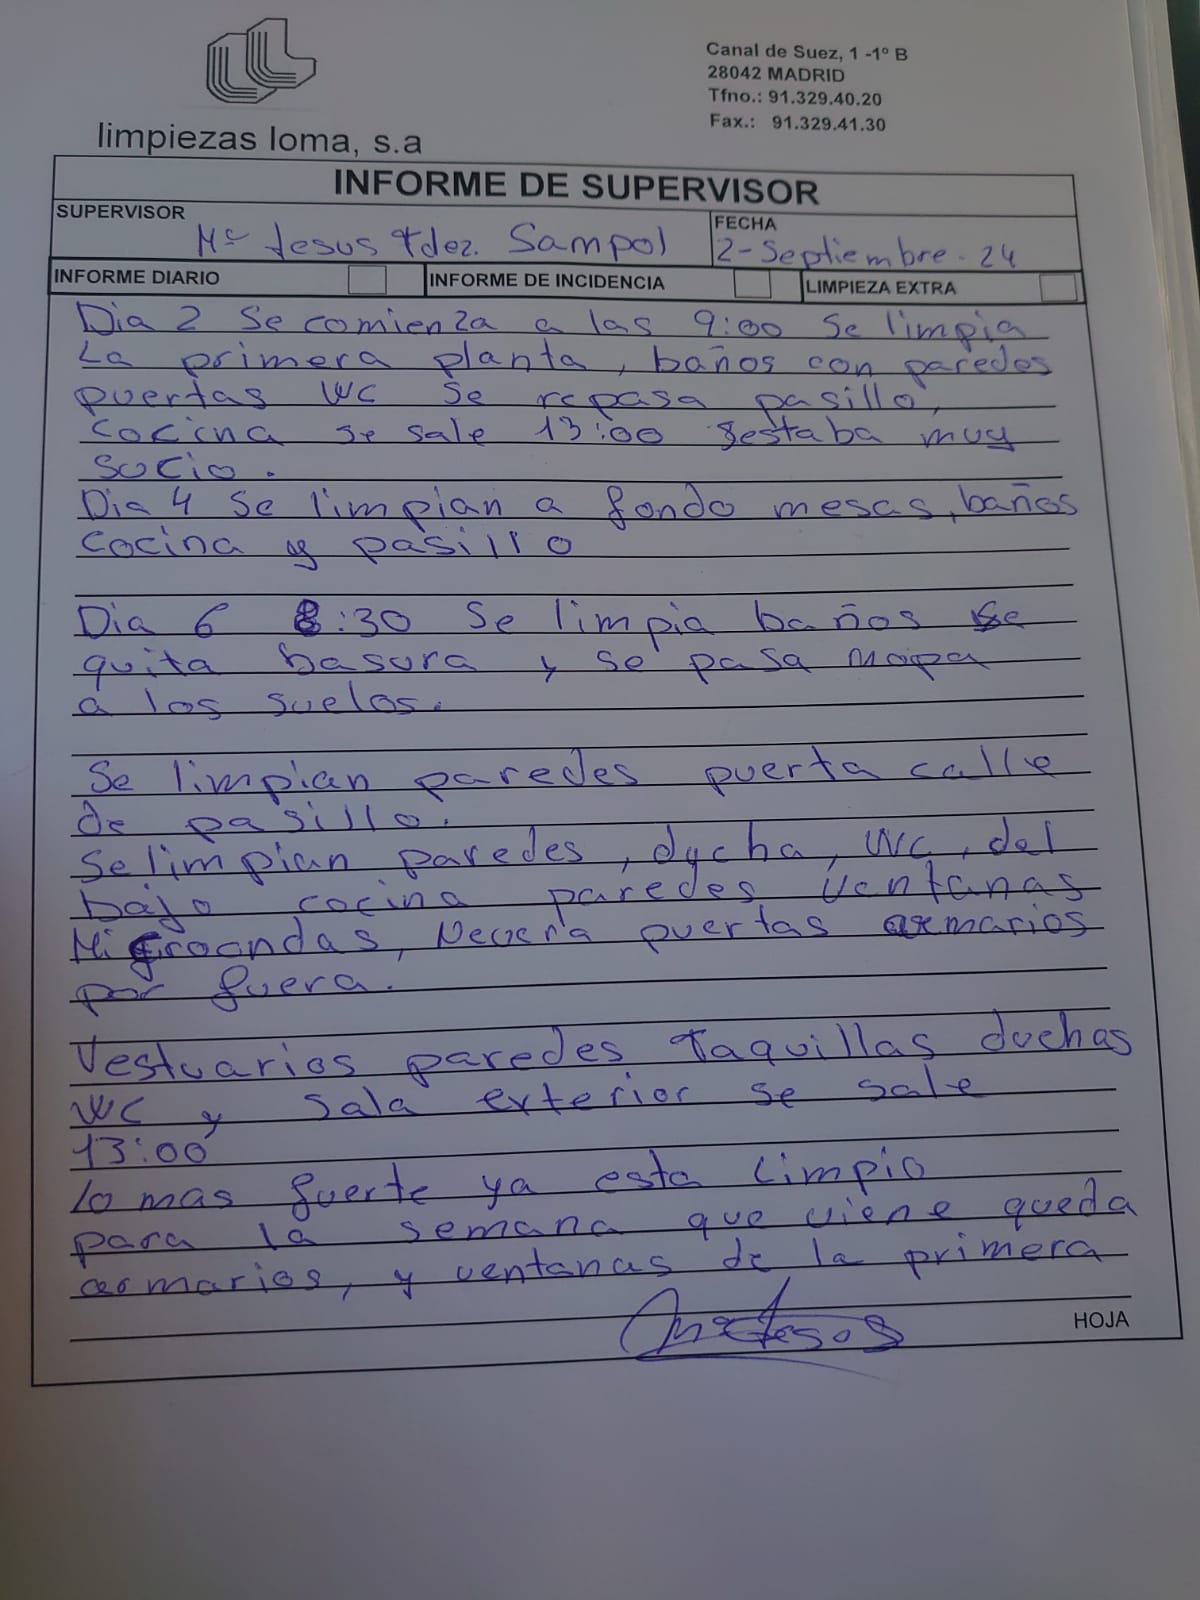 limpiezas loma, s.a
Canal de Suez, 1 -1º B
28042 MADRID
Tfno.: 91.329.40.20
Fax.: 91.329.41.30
INFORME DE SUPERVISOR
SUPERVISOR
Mª Jesus Fdez. Sampol
FECHA
2-Septiembre-24
INFORME DIARIO
INFORME DE INCIDENCIA
LIMPIEZA EXTRA
Dia 2 Se comienza a las 9:00 Se limpia
La primera planta, baños con paredes
puertas WC Se repasa pasillo,
cocina se sale 13:00 estaba muy
sucio.
Dia 4 Se limpian a fondo mesas, baños
cocina y pasillo
Dia 6 8:30 Se limpia baños se
quita basura y se pasa mopa
a los suelos.
Se limpian paredes puerta calle
de pasillo.
Se limpian paredes, ducha, WC, del
bajo cocina paredes ventanas
Microondas, Nevera puertas armarios
por fuera.
Vestuarios paredes taquillas duchas
WC y sala exterior se sale
13:00
lo mas fuerte ya esta limpio
para la semana que viene queda
armarios, y ventanas de la primera
Mª Jesus
HOJA